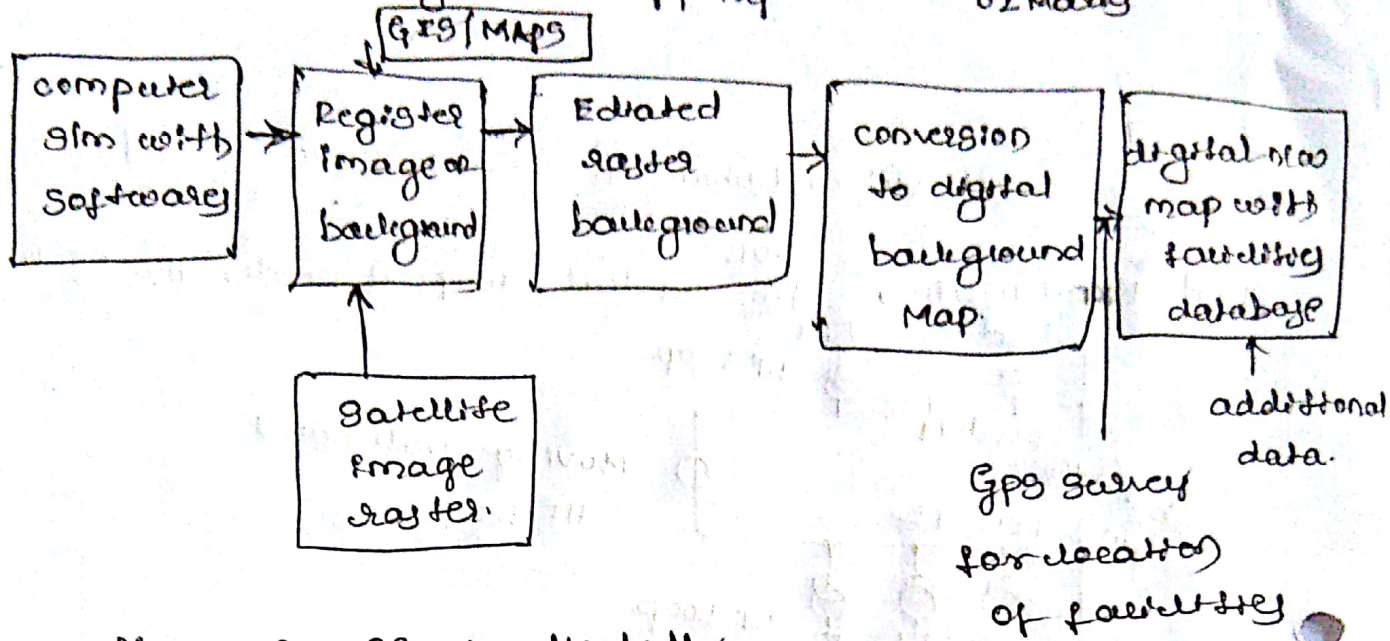 GIS/MAPS
computer
s/m with
softwares
Register
image or
background
Ediated
raster
background
conversion
to digital
background
Map.
digital
map with
facilities
database
satellite
image
raster.
additional
data.
GPS survey
for location
of facilities